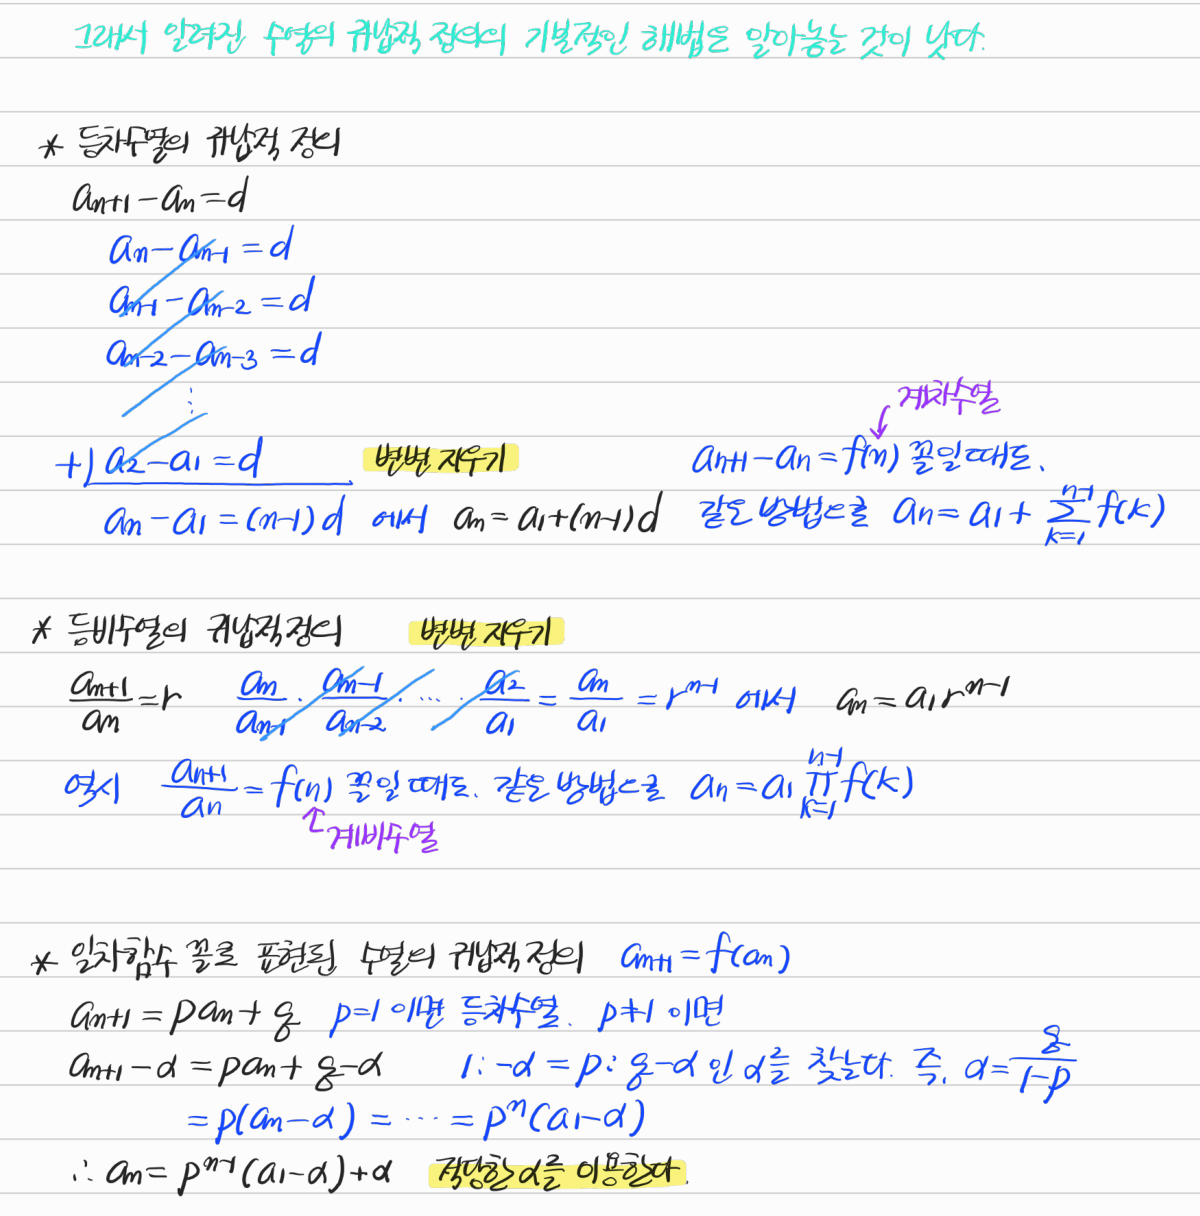 그래서 알려진 수열의 귀납적 정의의 기본적인 해법은 알아놓는 것이 낫다.
* 등차수열의 귀납적 정의
aₙ₊₁ - aₙ = d
aₙ - aₙ₋₁ = d
aₙ₋₁ - aₙ₋₂ = d
aₙ₋₂ - aₙ₋₃ = d
⋮
계차수열
+) a₂ - a₁ = d 변변 지우기 aₙ₊₁ - aₙ = f(n) 꼴일 때도,
aₙ - a₁ = (n-1)d 에서 aₙ = a₁ + (n-1)d 같은 방법으로 aₙ = a₁ + ∑_{k=1}^{n-1} f(k)
* 등비수열의 귀납적 정의 변변 지우기
aₙ₊₁/aₙ = r aₙ/aₙ₋₁ · aₙ₋₁/aₙ₋₂ · ⋯ · a₂/a₁ = aₙ/a₁ = rⁿ⁻¹ 에서 aₙ = a₁rⁿ⁻¹
역시 aₙ₊₁/aₙ = f(n) 꼴일 때도, 같은 방법으로 aₙ = a₁ ∏_{k=1}^{n-1} f(k)
계비수열
* 일차함수 꼴로 표현된 수열의 귀납적 정의 aₙ₊₁ = f(aₙ)
aₙ₊₁ = paₙ + q p=1 이면 등차수열. p≠1 이면
aₙ₊₁ - α = paₙ + q - α 1 : -α = p : q-α 인 α를 찾는다. 즉, α = q/(1-p)
= p(aₙ - α) = ⋯ = pⁿ(a₁ - α)
∴ aₙ = pⁿ⁻¹(a₁ - α) + α 적당한 α를 이용한다.